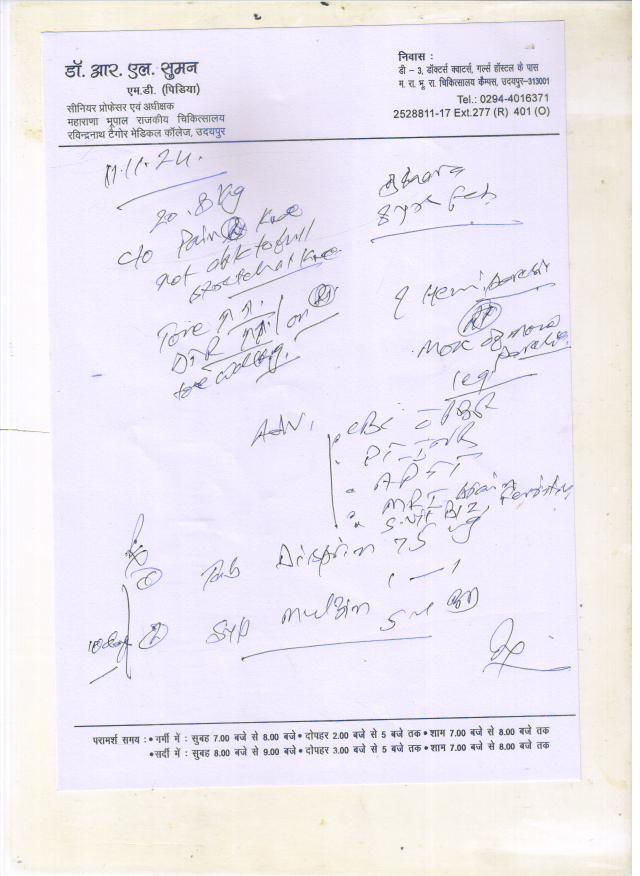 डॉ. आर. एल. सुमन
एम.डी. (पिडिया)
सीनियर प्रोफेसर एवं अधीक्षक
महाराणा भूपाल राजकीय चिकित्सालय
रविन्द्रनाथ टैगोर मेडिकल कॉलेज, उदयपुर
निवास :
डी – 3, डॉक्टर्स क्वाटर्स, गर्ल्स हॉस्टल के पास
म. रा. भू. रा. चिकित्सालय कैम्पस, उदयपुर–313001
Tel.: 0294-4016371
2528811-17 Ext.277 (R) 401 (O)
11.11.24.
20.8 kg
c/o Pain Knee
not able to full
stretch at knee
Tone
DTR on
toe walking.
8 yrs
Hemiparesis
leg
Adv.
CBC PBF
PT-INR
APTT
MRI Brain
S. Vit B12, Ferritin
Tab Disprin 75 mg
1 — 1
Syp 5 ml
परामर्श समय : • गर्मी में : सुबह 7.00 बजे से 8.00 बजे • दोपहर 2.00 बजे से 5 बजे तक • शाम 7.00 बजे से 8.00 बजे तक
• सर्दी में : सुबह 8.00 बजे से 9.00 बजे • दोपहर 3.00 बजे से 5 बजे तक • शाम 7.00 बजे से 8.00 बजे तक